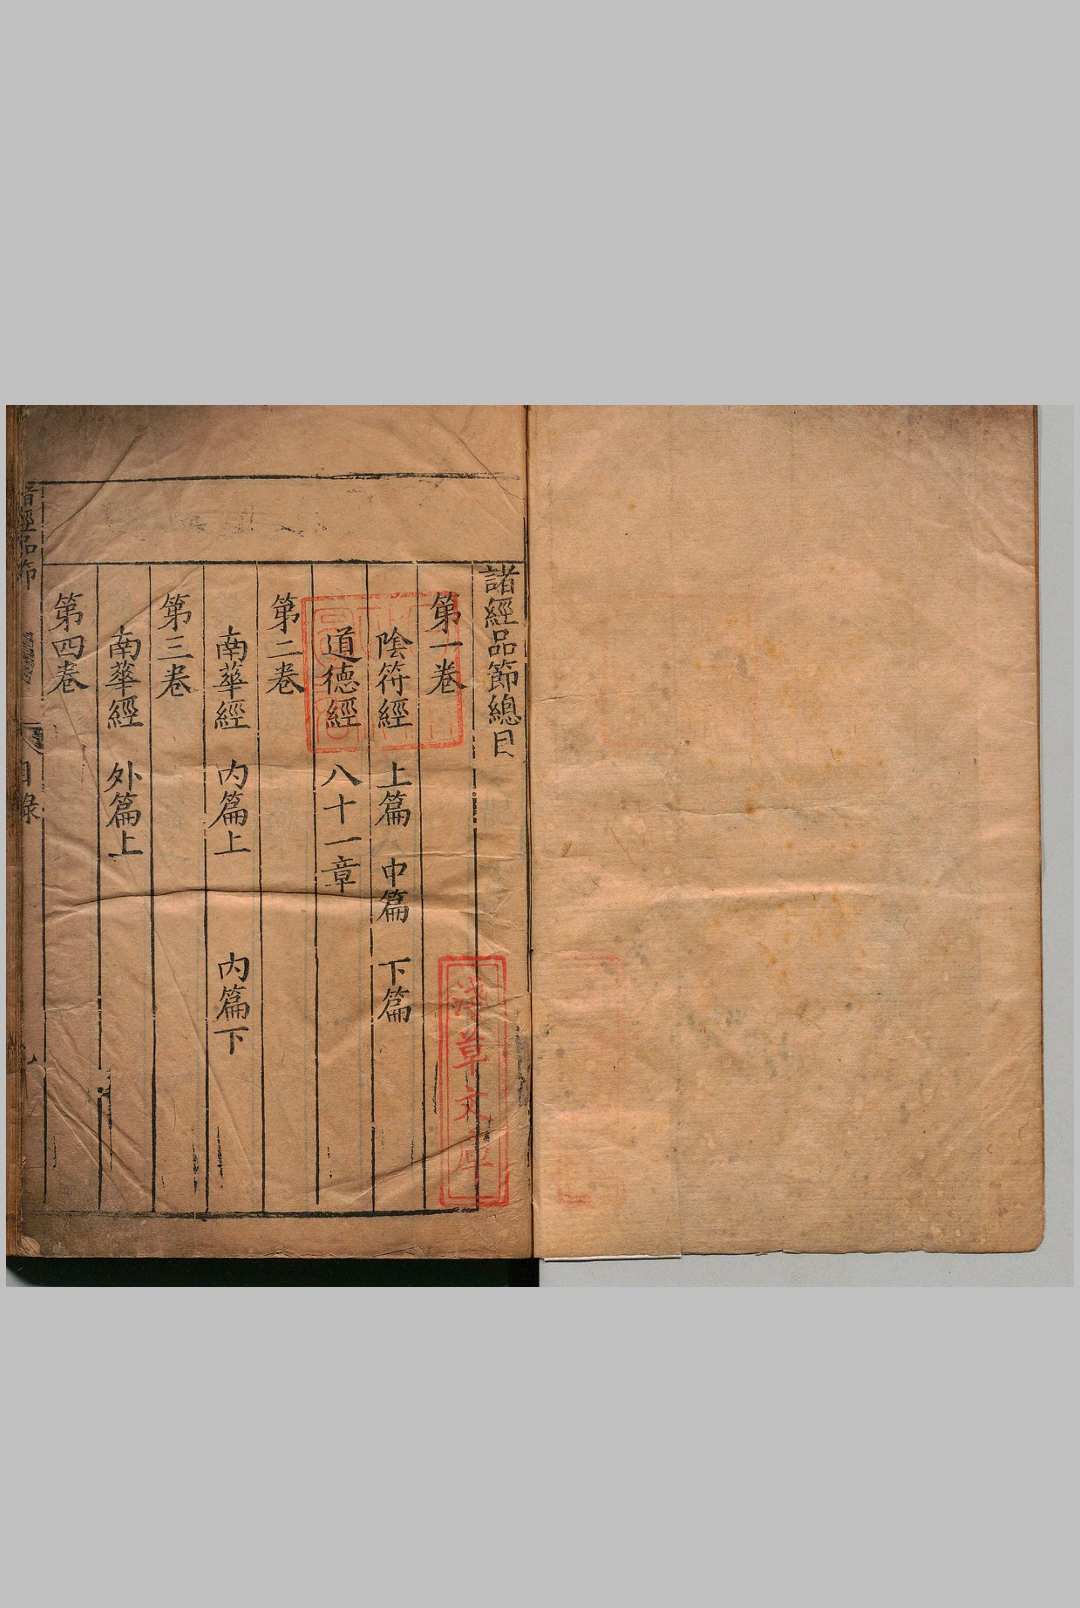 諸經品節總目
第一卷
陰符經 上篇 中篇 下篇
道德經 八十一章
第二卷
南華經 內篇上 內篇下
第三卷
南華經 外篇上
第四卷
諸經品節
目錄
淺草文庫